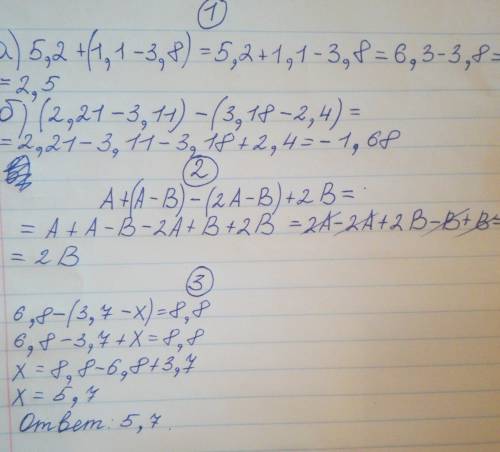 1
а) 5,2 + (1,1 – 3,8) = 5,2 + 1,1 – 3,8 = 6,3 – 3,8 =
= 2,5
б) (2,21 – 3,11) – (3,18 – 2,4) =
= 2,21 – 3,11 – 3,18 + 2,4 = – 1,68
2
А + (А – В) – (2А – В) + 2В =
= А + А – В – 2А + В + 2В = 2А – 2А + 2В – В + В =
= 2В
3
6,8 – (3,7 – х) = 8,8
6,8 – 3,7 + х = 8,8
х = 8,8 – 6,8 + 3,7
х = 5,7
Ответ: 5,7.